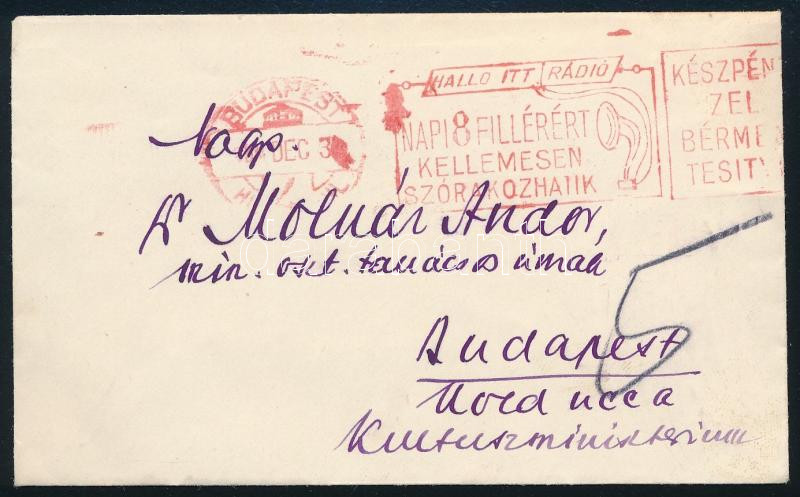 HALLO ITT RÁDIÓ
NAPI 8 FILLÉRÉRT
KELLEMESEN
SZÓRAKOZHATIK
KÉSZPÉN
ZEL
BÉRME
TESIT
BUDAPEST
DEC 3
Nagys.
Dr Molnár Andor,
min. oszt. tanácsos úrnak
Budapest
Hold ucca
Kultuszminisztérium
5